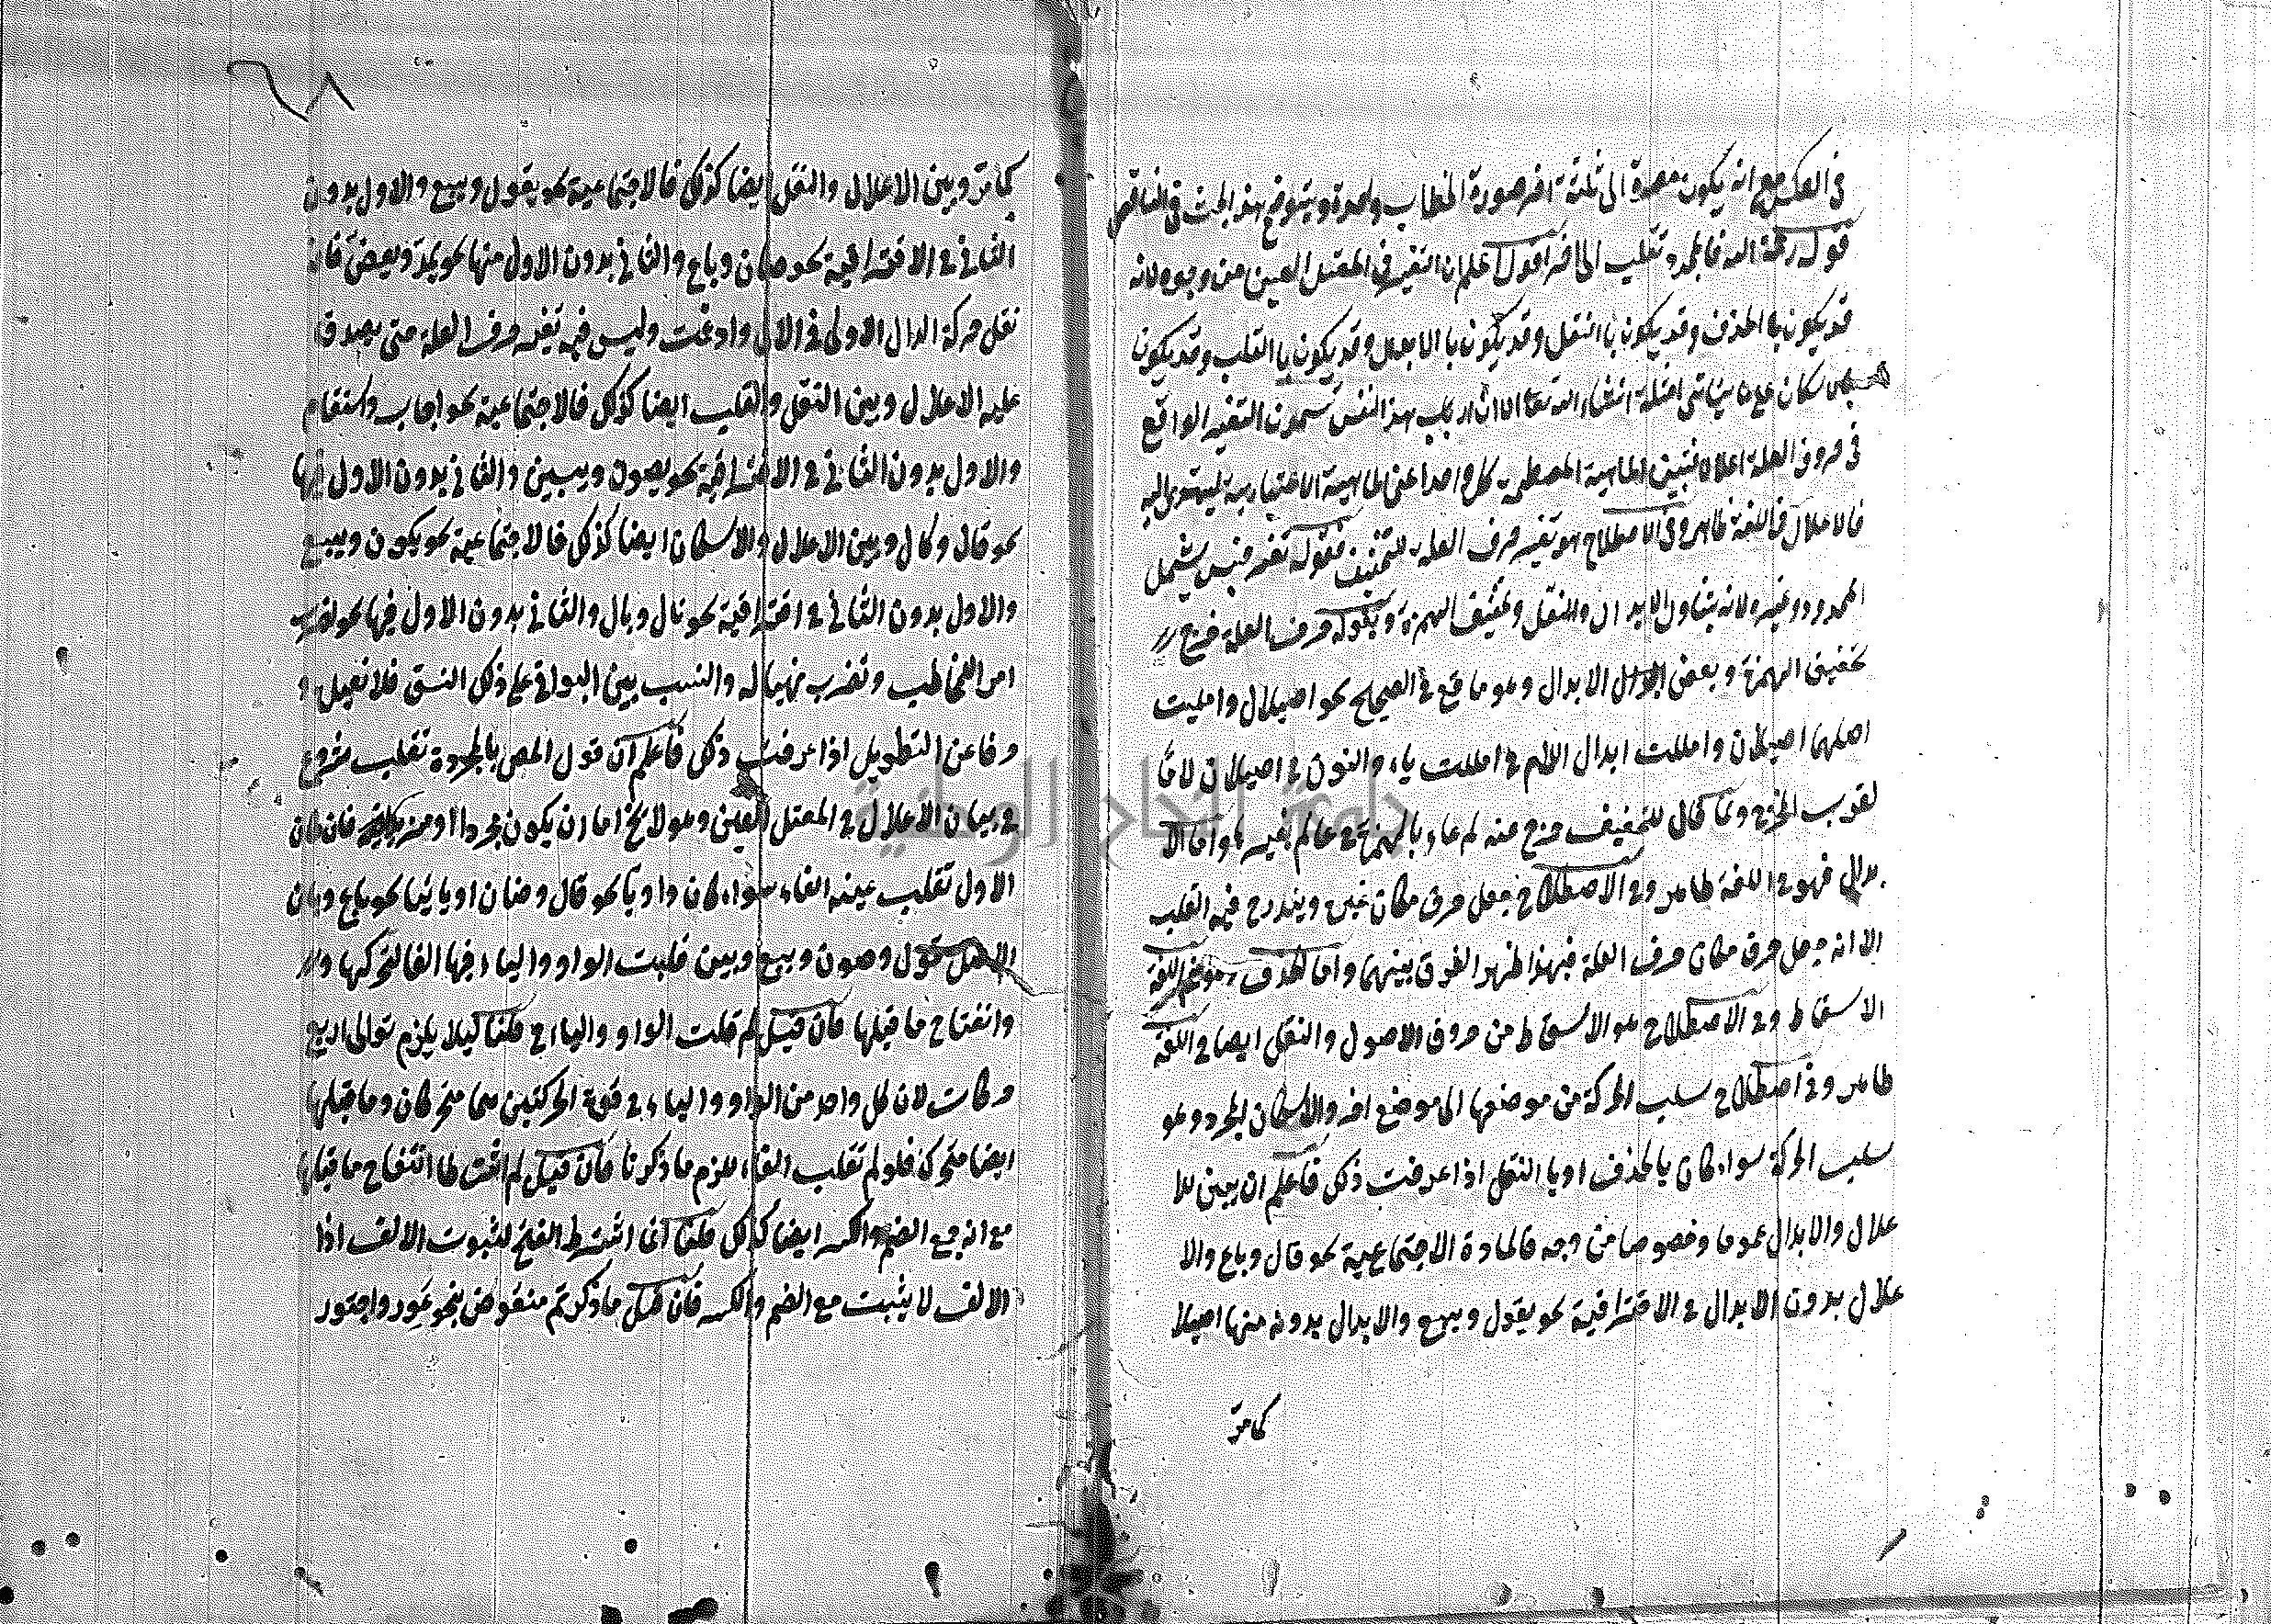 في العكس مع انه يكون مصدرة الى ثلثة اخر صورة الخطاب واحدة ويتوضح بهذا البحث في الناقص
قوله رحمة الله فالمجرد تقلب الى اخره اقول اعلم ان التغير في المعتل العين من وجوه لانه
قد يكون با الحذف وقد يكون با النقل وقد يكون با الابدال وقد يكون با القلب وقد يكون
كان على ما سياتي امثلة انشاء الله تعا الا ان ارباب هذا الفن يسمون التغير الواقع
في حروف العلة اعلالا فنبين الماهية المصطلحية كل واحد اعنى الماهية الاعتبارية ليهتدى اليه
فالاعلال في اللغة ظاهر وفي الاصطلاح هو تغير حرف العلة للتخفيف فقوله تغير جنس يشمل
المحدود وغيره لانه يتناول الابدال والنقل وتخفيف الهمزة وبكونه حرف العلة خرج
تخفيف الهمزة وبعض الابدال وهو ما وقع في الصحيح نحو اصيلال وامليت
اصلهما اصيلان واملت ابدال اللام في امللت ياء والنون في اصيلان لاما
لقوب المخرج ولما قال للتخفيف خرج منه لم عاء بالهمزة في عالم بغيرها واما الا
بدال فهو في اللغة ظاهر وفي الاصطلاح جعل حرف مكان غيره ويندرج فيه القلب
الا انه جعل حرف مكان حرف العلة فبهذا ظهر الفرق بينهما واما الحذف في اللغة
الاسقاط وفي الاصطلاح هو الاسقاط من حروف الاصول والنقل ايضا في اللغة
ظاهر وفي اصطلاح سلب الحركة من موضعها الى موضع اخر والاسكان المجرد وهو
سلب الحركة سواء كان بالحذف او با النقل اذا عرفت ذكل فاعلم ان بين الا
علال والابدال عموما وخصوصا من وجه فالمادة الاجتماعية نحو قال وباع والا
علال بدون الابدال في الافتراقية نحو يقول ويبيع والابدال بدونه منها اصيلا
كما مر
٦٨
كما مر وبين الاعلال والنقل ايضا كذلك فالاجتماعية نحو يقول ويبيع والاول بدون
الثاني في الافتراقية نحو صان وباع والثاني بدون الاول منها نحو يمد ويعض فانه
نقل حركة الدال الاولى في الاول وادغمت وليس فيه تغير حرف العلة حتى يصدق
عليه الاعلال وبين النقل والقلب ايضا كذلك فالاجتماعية نحو اجاب واستقام
والاول بدون الثاني في الافتراقية نحو يصون ويبين والثاني بدون الاول فيها
نحو قال وكال وبين الاعلال والاسكان ايضا كذلك فالاجتماعية نحو يكون ويبيع
والاول بدون الثاني في افتراقية نحو نال وبال والثاني بدون الاول فيها نحو اضرب
امر المخاطب وتضرب نهيا له والنسب بين البواقي على ذلك النسق فلا نفصل
خوفا عن التطويل اذا عرفت ذكل فاعلم ان قول المص بالمجردة تقلب شروع
في بيان الاعلال في المعتل العين وهو لا يخ اما ان يكون مجردا او مزيدا فيه فان كان
الاول تقلب عينه الفاء سواء كان واويا نحو قال وصان او يائيا نحو باع وبان
الاصل قول وصون وبيع وبين قلبت الواو والياء فيها الفا لتحركها
وانفتاح ما قبلها فان قيل لم قلبت الواو والياء ح قلنا ليلا يلزم توالى اربع
حركات لان كل واحد من الواو والياء في قوة الحركتين هما متحركان وما قبلها
ايضا متحركة فلو لم تقلب الفاء للزم ما ذكرنا فان قيل لم اشترطا انفتاح ما قبلها
مع انه مع الضم والكسر ايضا كذلك قلنا انما اشترط الفتح لثبوت الالف اذا
الالف لا يثبت مع الضم والكسر فان قيل ما ذكرتم منقوض بنحو عَوِر واجتور